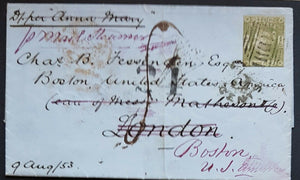 Dp per Anna Mary
p Mail Steamer
Chas B. Fessenden Esq
Boston, United States America
(care of Messrs
London
Boston,
U. S. America
9 Aug/53